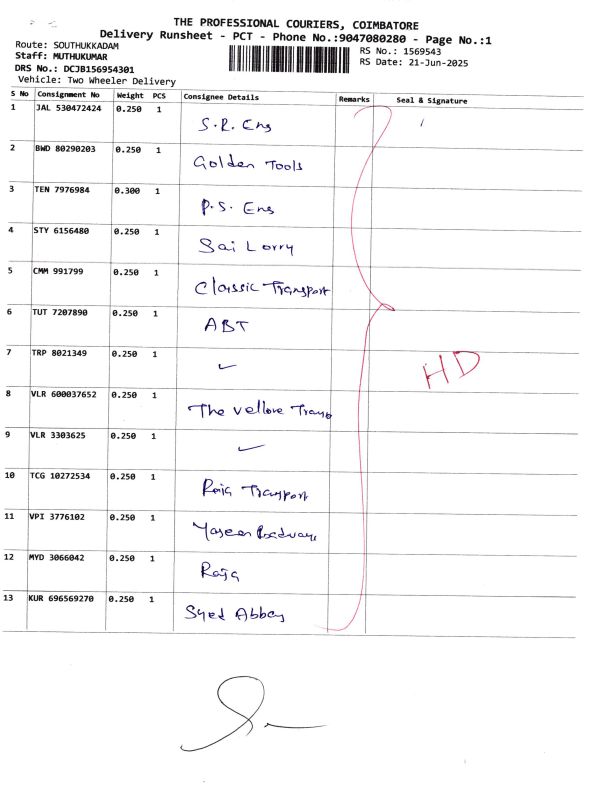 THE PROFESSIONAL COURIERS, COIMBATORE
Delivery Runsheet - PCT - Phone No.:9047080280 - Page No.:1
Route: SOUTHUKKADAM
RS No.: 1569543
Staff: MUTHUKUMAR
RS Date: 21-Jun-2025
DRS No.: DCJB156954301
Vehicle: Two Wheeler Delivery
S No Consignment No Weight PCS Consignee Details Remarks Seal & Signature
1 JAL 530472424 0.250 1 S.R. Eng
2 BWD 80290203 0.250 1 Golden Tools
3 TEN 7976984 0.300 1 P.S. Eng
4 STY 6156480 0.250 1 Sai Lorry
5 CMM 991799 0.250 1 Classic Transport
6 TUT 7207890 0.250 1 ABT
7 TRP 8021349 0.250 1 ✓
HD
8 VLR 600037652 0.250 1 The vellore Trans
9 VLR 3303625 0.250 1 ✓
10 TCG 10272534 0.250 1 Raja Transport
11 VPI 3776102 0.250 1 Yaseen
12 MYD 3066042 0.250 1 Raja
13 KUR 696569270 0.250 1 Syed Abbas